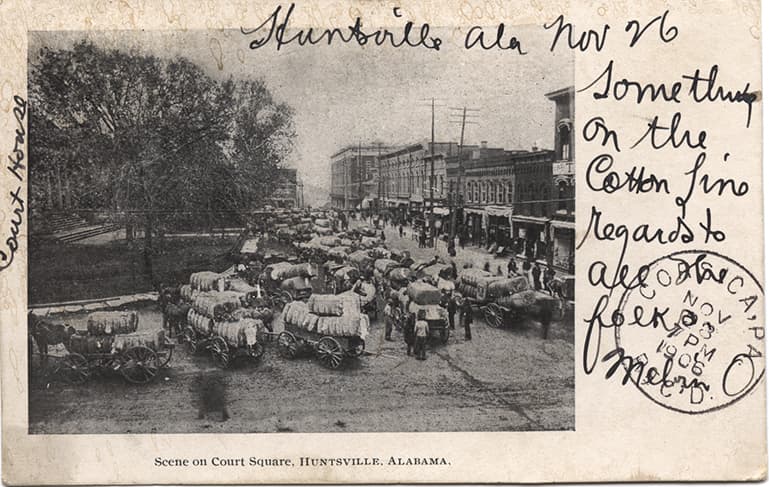 Huntsville ala Nov 26
Something
on the
Cotton line
regards to
all the
folks
Melvin
Court House
CO CA, PA
NOV
PM
1906
REC'D.
Scene on Court Square, HUNTSVILLE, ALABAMA.